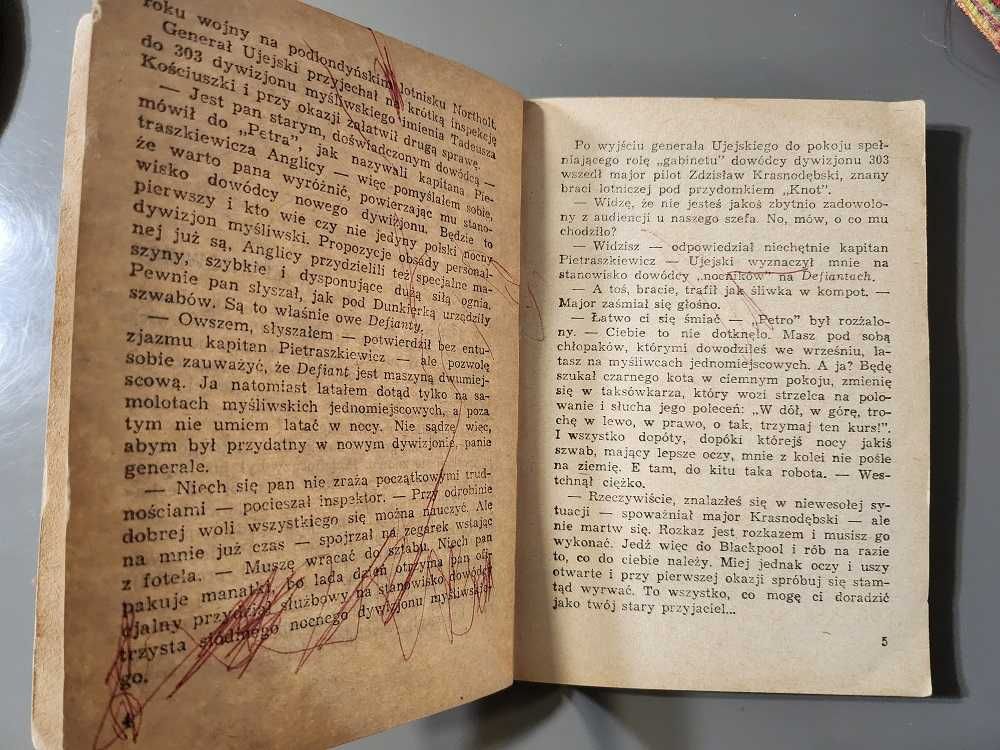 roku wojny na podlondyńskim lotnisku Northolt.
Generał Ujejski przyjechał na krótką inspekcję
do 303 dywizjonu myśliwskiego imienia Tadeusza
Kościuszki i przy okazji załatwił drugą sprawę.
— Jest pan starym, doświadczonym dowódcą —
mówił do „Petra”, jak nazywali kapitana Pie-
traszkiewicza Anglicy — więc pomyślałem sobie,
że warto pana wyróżnić, powierzając mu stano-
wisko dowódcy nowego dywizjonu. Będzie to
pierwszy i kto wie czy nie jedyny polski nocny
dywizjon myśliwski. Propozycje obsady personal-
nej już są, Anglicy przydzielili też specjalne ma-
szyny, szybkie i dysponujące dużą siłą ognia.
Pewnie pan słyszał, jak pod Dunkierką urządziły
szwabów. Są to właśnie owe Defianty.
— Owszem, słyszałem — potwierdził bez entu-
zjazmu kapitan Pietraszkiewicz — ale pozwolę
sobie zauważyć, że Defiant jest maszyną dwumiej-
scową. Ja natomiast latałem dotąd tylko na sa-
molotach myśliwskich jednomiejscowych, a poza
tym nie umiem latać w nocy. Nie sądzę więc,
abym był przydatny w nowym dywizjonie, panie
generale.
— Niech się pan nie zraża początkowymi trud-
nościami — pocieszał inspektor. — Przy odrobinie
dobrej woli wszystkiego się można nauczyć. Ale
na mnie już czas — spojrzał na zegarek wstając
z fotela. — Muszę wracać do sztabu. Niech pan
pakuje manatki, bo lada dzień otrzyma pan ofi-
cjalny przydział służbowy na stanowisko dowódcy
trzysta siódmego nocnego dywizjonu myśliwskie-
go.
4
Po wyjściu generała Ujejskiego do pokoju speł-
niającego rolę „gabinetu” dowódcy dywizjonu 303
wszedł major pilot Zdzisław Krasnodębski, znany
braci lotniczej pod przydomkiem „Knot”.
— Widzę, że nie jesteś jakoś zbytnio zadowolo-
ny z audiencji u naszego szefa. No, mów, o co mu
chodziło?
— Widzisz — odpowiedział niechętnie kapitan
Pietraszkiewicz — Ujejski wyznaczył mnie na
stanowisko dowódcy „nocników” na Defiantach.
— A toś, bracie, trafił jak śliwka w kompot. —
Major zaśmiał się głośno.
— Łatwo ci się śmiać — „Petro” był rozżalo-
ny. — Ciebie to nie dotknęło. Masz pod sobą
chłopaków, którymi dowodziłeś we wrześniu, la-
tasz na myśliwcach jednomiejscowych. A ja? Będę
szukał czarnego kota w ciemnym pokoju, zmienię
się w taksówkarza, który wozi strzelca na polo-
wanie i słucha jego poleceń: „W dół, w górę, tro-
chę w lewo, w prawo, o tak, trzymaj ten kurs!”.
I wszystko dopóty, dopóki którejś nocy jakiś
szwab, mający lepsze oczy, mnie z kolei nie pośle
na ziemię. E tam, do kitu taka robota. — Wes-
tchnął ciężko.
— Rzeczywiście, znalazłeś się w niewesołej sy-
tuacji — spoważniał major Krasnodębski — ale
nie martw się. Rozkaz jest rozkazem i musisz go
wykonać. Jedź więc do Blackpool i rób na razie
to, co do ciebie należy. Miej jednak oczy i uszy
otwarte i przy pierwszej okazji spróbuj się stam-
tąd wyrwać. To wszystko, co mogę ci doradzić
jako twój stary przyjaciel...
5